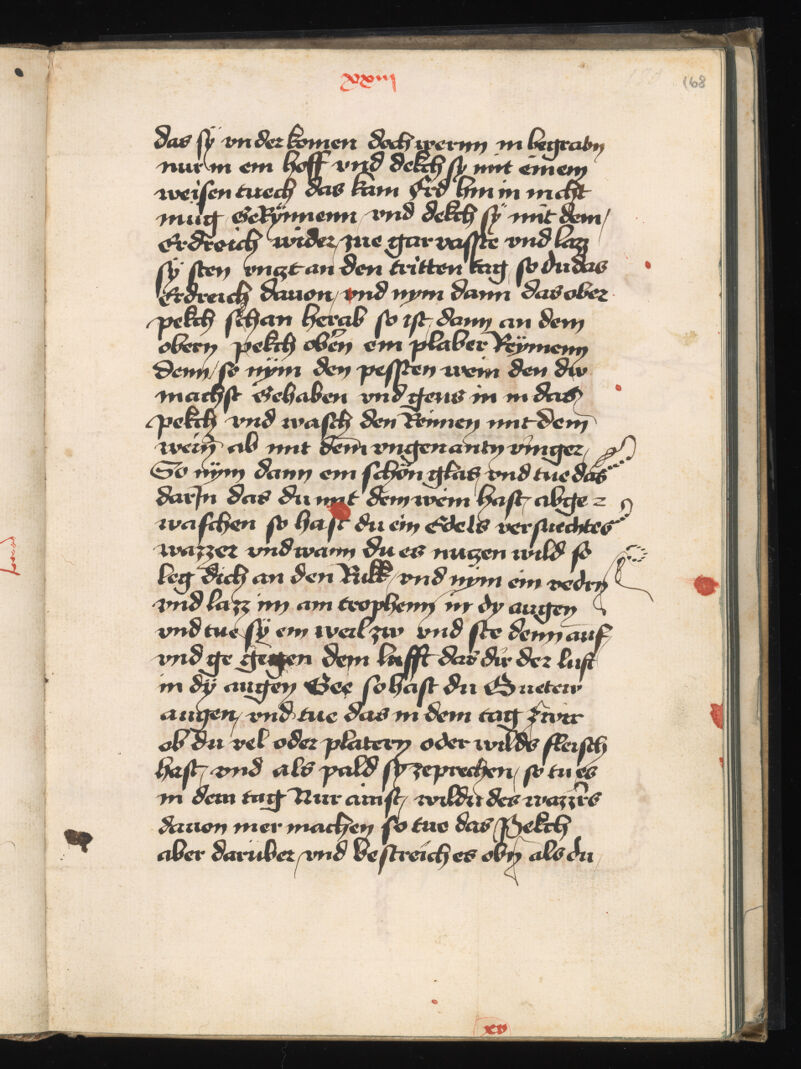 xxiiij
168
das sÿ vnder komen doch werinn in begrabn
nur in ein hoff vnd dekch sy mit einem
weisen tuech das kain Erd hin in nicht
mug Gerÿnnenn vnd dekch sÿ mit dem
Erdreich wider zue gar vasste vnd lazz
sÿ sten vnczt an den tritten tag so du das
Erdreich dauon vnd nym dann das ober
pekch schan herab so ist dann an dem
obern pekch oben ein plaber Reÿmenn
Denn so nÿm den pessten wein den dw
machst Gehaben vnd geus in in das
pekch vnd wasch den Reimen mit dem
wein ab mit dem vngenantn vinger
So nÿm dann ein schön glas vnd tue das
darJn das du mit dem wein hast abge
waschen so hast du ein Edels versuechtes
wazzer vnd wann du es nuczen wild so
leg dich an den Rukk vnd nÿm ein vedrn
vnd lazz im ain trophenn in dy augen
vnd tue sÿ ein weil zw vnd ste denn auf
vnd ge gegen dem lufft das dir der luft
in dÿ augen Gee so hast du Guetew
augen vnd tue das in dem tag Zwir
ob du vel oder platern oder wilds fleisch
hast vnd als pald sy zeprechen so tu es
in dem tag Nur ainst wildu des wazzers
dauon mer machen so tue das Pekch
aber daruber vnd bestreich es obn als du
xv